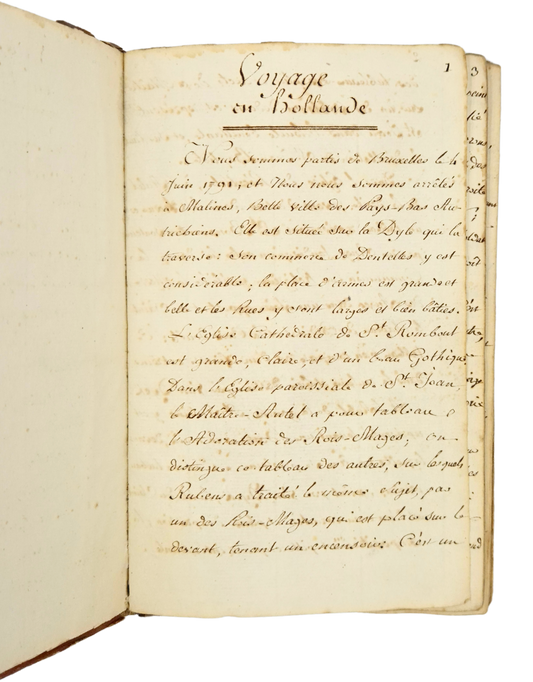 Voyage
en Hollande
1
Nous sommes partis de Bruxelles le 4
Juin 1791, et Nous nous sommes arrêtés
à Malines, Belle ville des Pays-Bas Au-
trichiens. Elle est située sur la Dyle qui la
traverse: son commerce de Dentelles y est
considérable; la place d'armes est grande et
belle et les Rues y sont larges et bien bâties.
L'Eglise Cathédrale de St. Rombout
est grande, Claire, et d'un beau Gothique
Dans l'Eglise paroissiale de St. Jean,
le Maître-Autel a pour tableau
l'Adoration des Rois-Mages; on
distingue ce tableau des autres, sur lesquels
Rubens a traité le même sujet, par
un des Rois-Mages, qui est placé sur le
devant, tenant un encensoir. C'est un
3